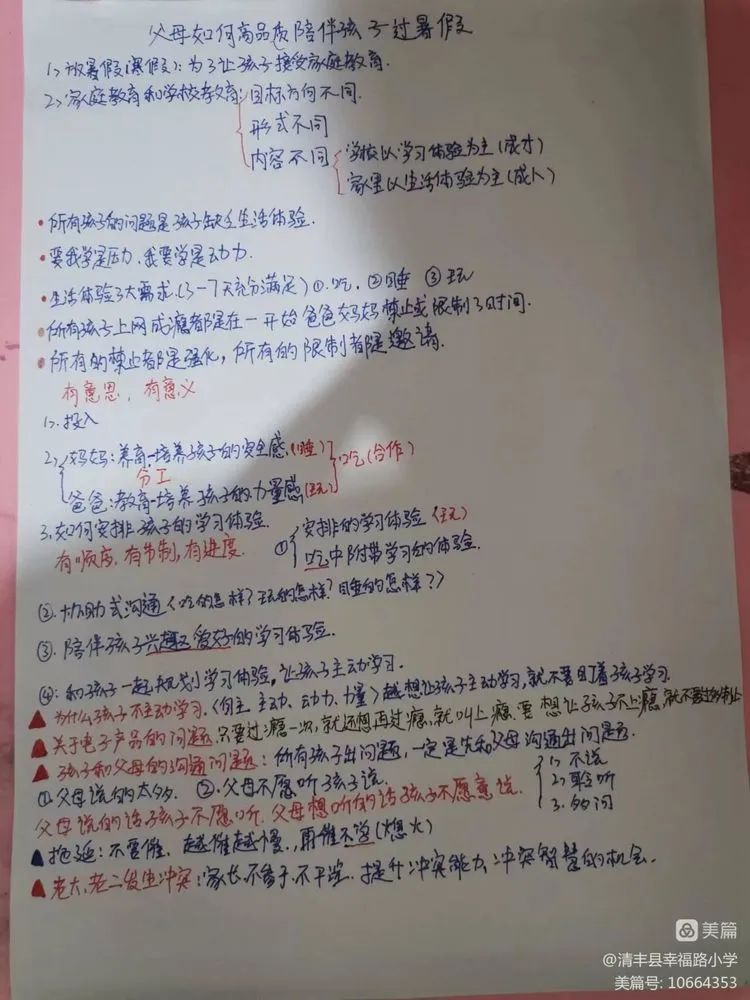 父母如何高品质陪伴孩子过暑假
1、放暑假(寒假):为了让孩子接受家庭教育.
2、家庭教育和学校教育:目标方向不同.
形式不同
内容不同
学校以学习体验为主(成才)
家里以生活体验为主(成人)
·所有孩子的问题是孩子缺乏生活体验.
·要我学是压力.我要学是动力.
·生活体验3大需求.(3-7天充分满足)①.吃.②睡 ③玩
·所有孩子上网成瘾都是在一开始爸爸妈妈禁止或限制了时间.
·所有的禁止都是强化,所有的限制都是邀请.
有意思,有意义
1、投入
2、妈妈:养育-培养孩子的安全感(睡)
分工
爸爸:教育-培养孩子的力量感(玩)
吃(合作)
3.如何安排孩子的学习体验.
有顺序.有节制,有进度.
①安排的学习体验(玩)
吃中附带学习的体验.
②.协助式沟通(吃的怎样?玩的怎样?睡的怎样?)
③.陪伴孩子兴趣爱好的学习体验.
④:和孩子一起规划学习体验,让孩子主动学习.
▲为什么孩子不主动学习.(自主.主动、动力、力量)越想让孩子主动学习,就不要盯着孩子学习.
▲关于电子产品的问题.只要过瘾一次,就还想再过瘾,就叫上瘾.要想让孩子不上瘾,就不要过多制止
▲孩子和父母的沟通问题:所有孩子出问题,一定是先和父母沟通出问题.
①.父母说的太多. ②.父母不愿听孩子说.
1、不说
2、聆听
3.多问
父母说的话孩子不愿听.父母想听的话孩子不愿意说.
▲拖延:不要催,越催越慢.,再催不学(熄火)
▲老大、老二发生冲突:家长不参于.不干涉.提升冲突能力、冲突智慧的机会.
美篇
@清丰县幸福路小学
美篇号: 10664353